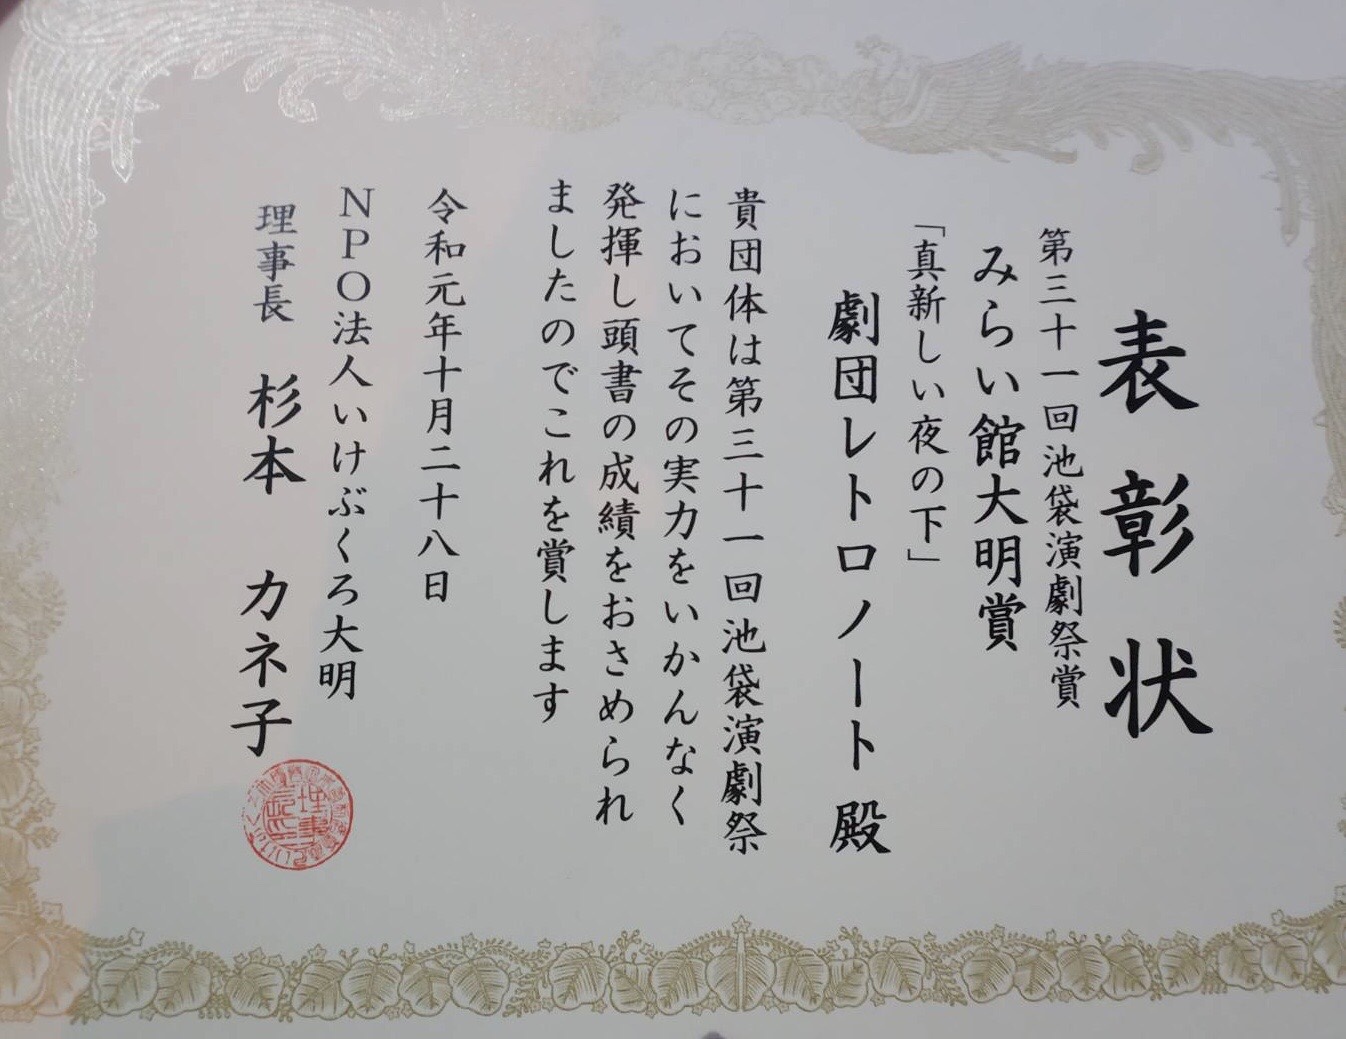 表彰状
第三十一回池袋演劇祭賞
みらい館大明賞
「真新しい夜の下」
劇団レトロノート殿
貴団体は第三十一回池袋演劇祭
においてその実力をいかんなく
発揮し頭書の成績をおさめられ
ましたのでこれを賞します
令和元年十月二十八日
NPO法人いけぶくろ大明
理事長 杉本 カネ子